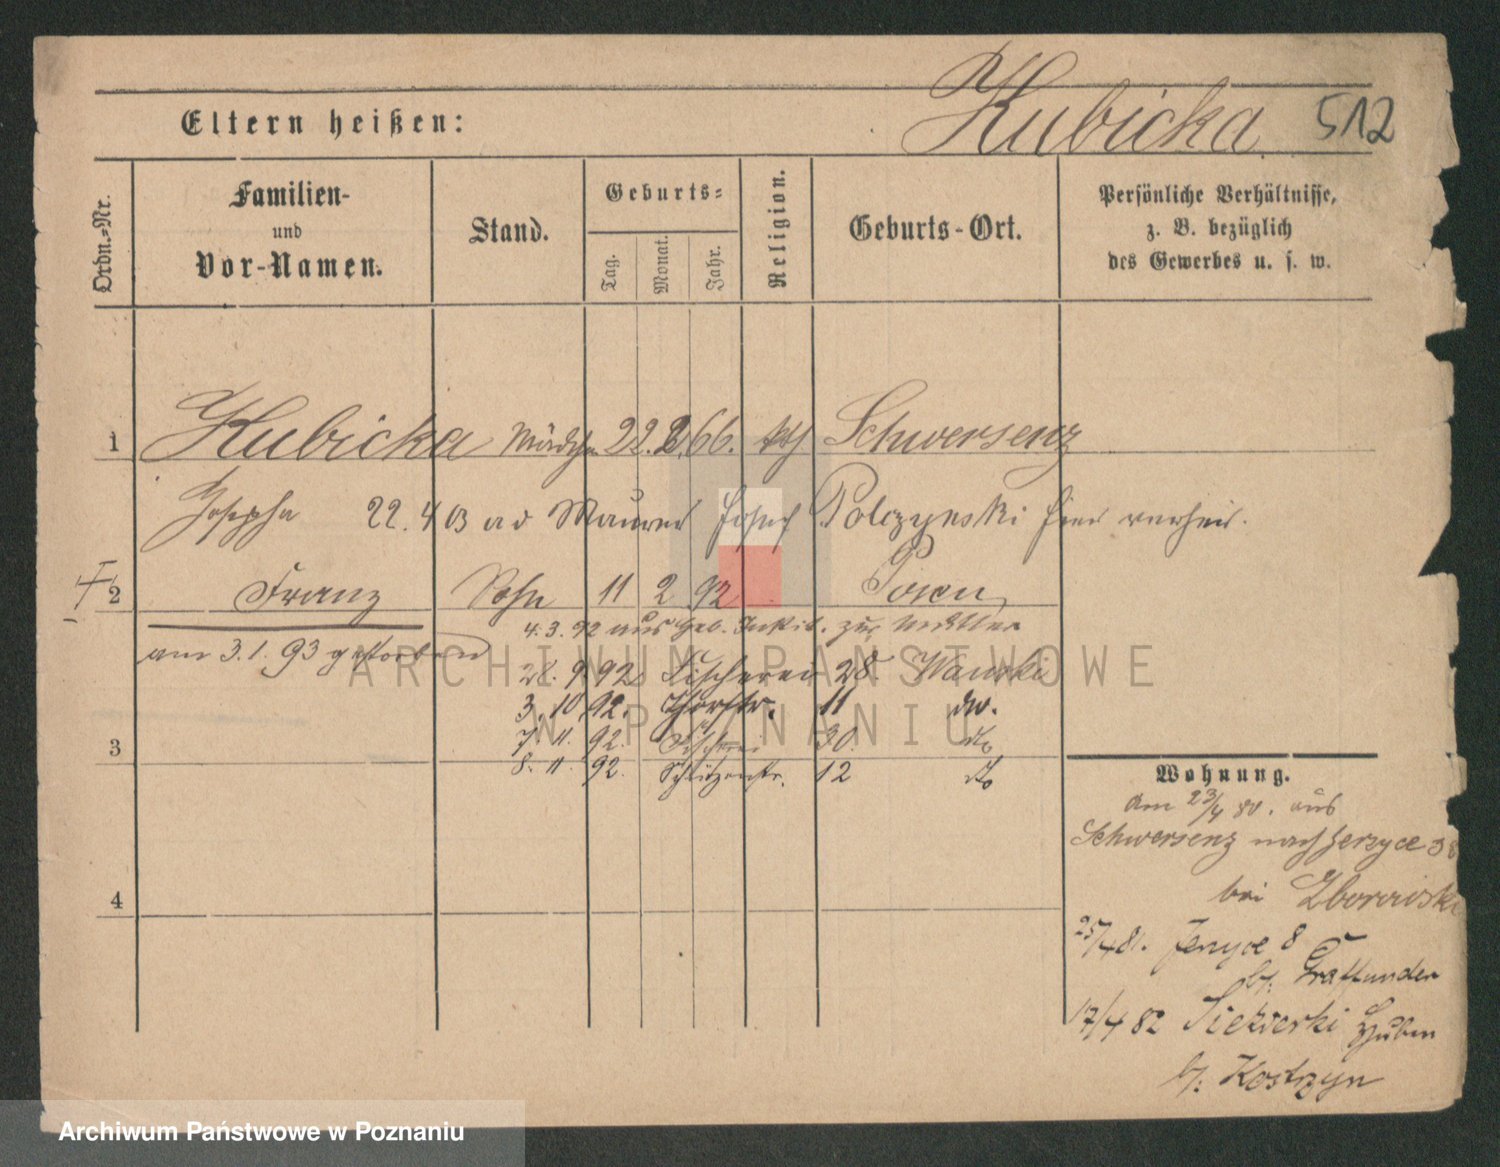 Kubicka 512
Eltern heißen:
Ordn.=Nr.
Familien-
und
Vor-Namen.
Stand.
Geburts=
Tag.
Monat.
Jahr.
Religion.
Geburts-Ort.
Persönliche Verhältnisse,
z. B. bezüglich
des Gewerbes u. s. w.
1 Kubicka 22. 2. 66. kth Schwersenz
Josepha 22. 4 03 Maurer Josef Polczynski hier verheir.
2 Franz Sohn 11 2 92 Posen
4. 3. 92 aus Geb. Instit. zur Mutter
am 3. 1. 93 gestorben
28. 9. 92 Fischerei 28 Wanski
3. 10 92. 11 do.
3 7. 11. 92. Fischerei 30. do
8. 11. 92. Schützenstr. 12 do
4
Wohnung.
am 23/4 80. aus
Schwersenz nach Jerzyce 38
bei Zborowski
25/4 81. Jerzyce 8
b/. Graffunder
17/4 82 Siekierki Huben
b/. Kostrzyn
ARCHIWUM PAŃSTWOWE
W POZNANIU
Archiwum Państwowe w Poznaniu